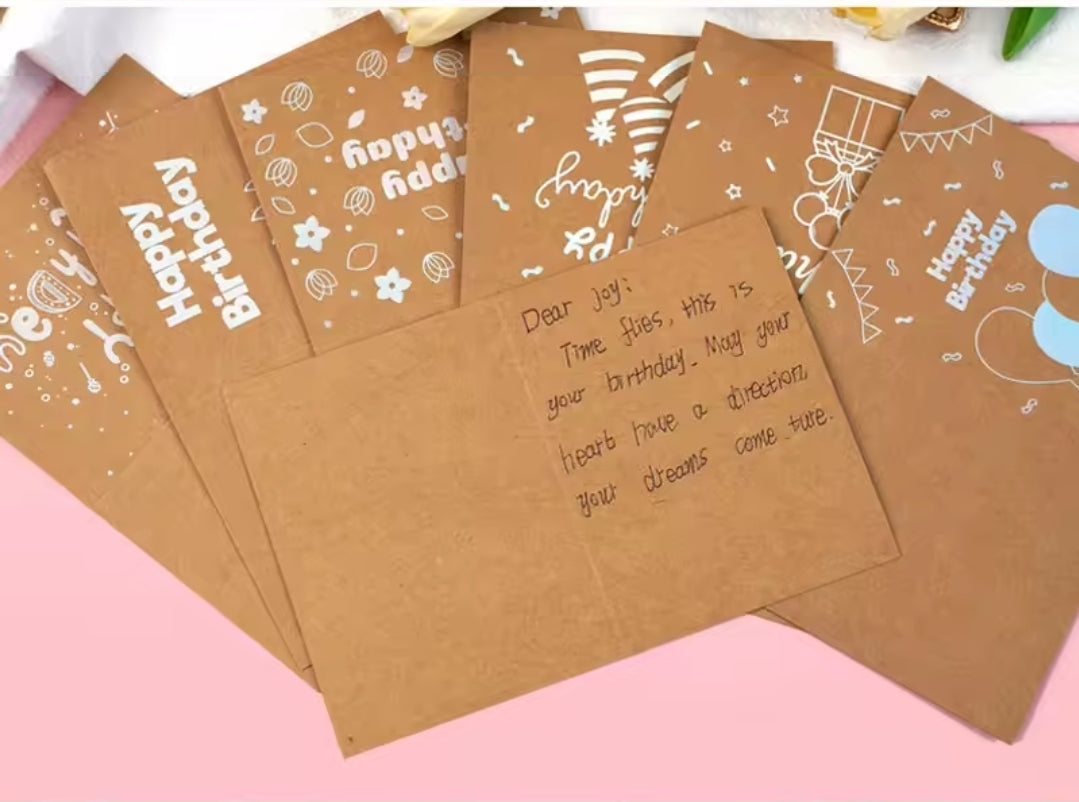 Happy
Birthday
Happy
thday
Happy
Birthday
Dear Joy:
Time flies, this is
your birthday. May your
heart have a direction,
your dreams come ture.